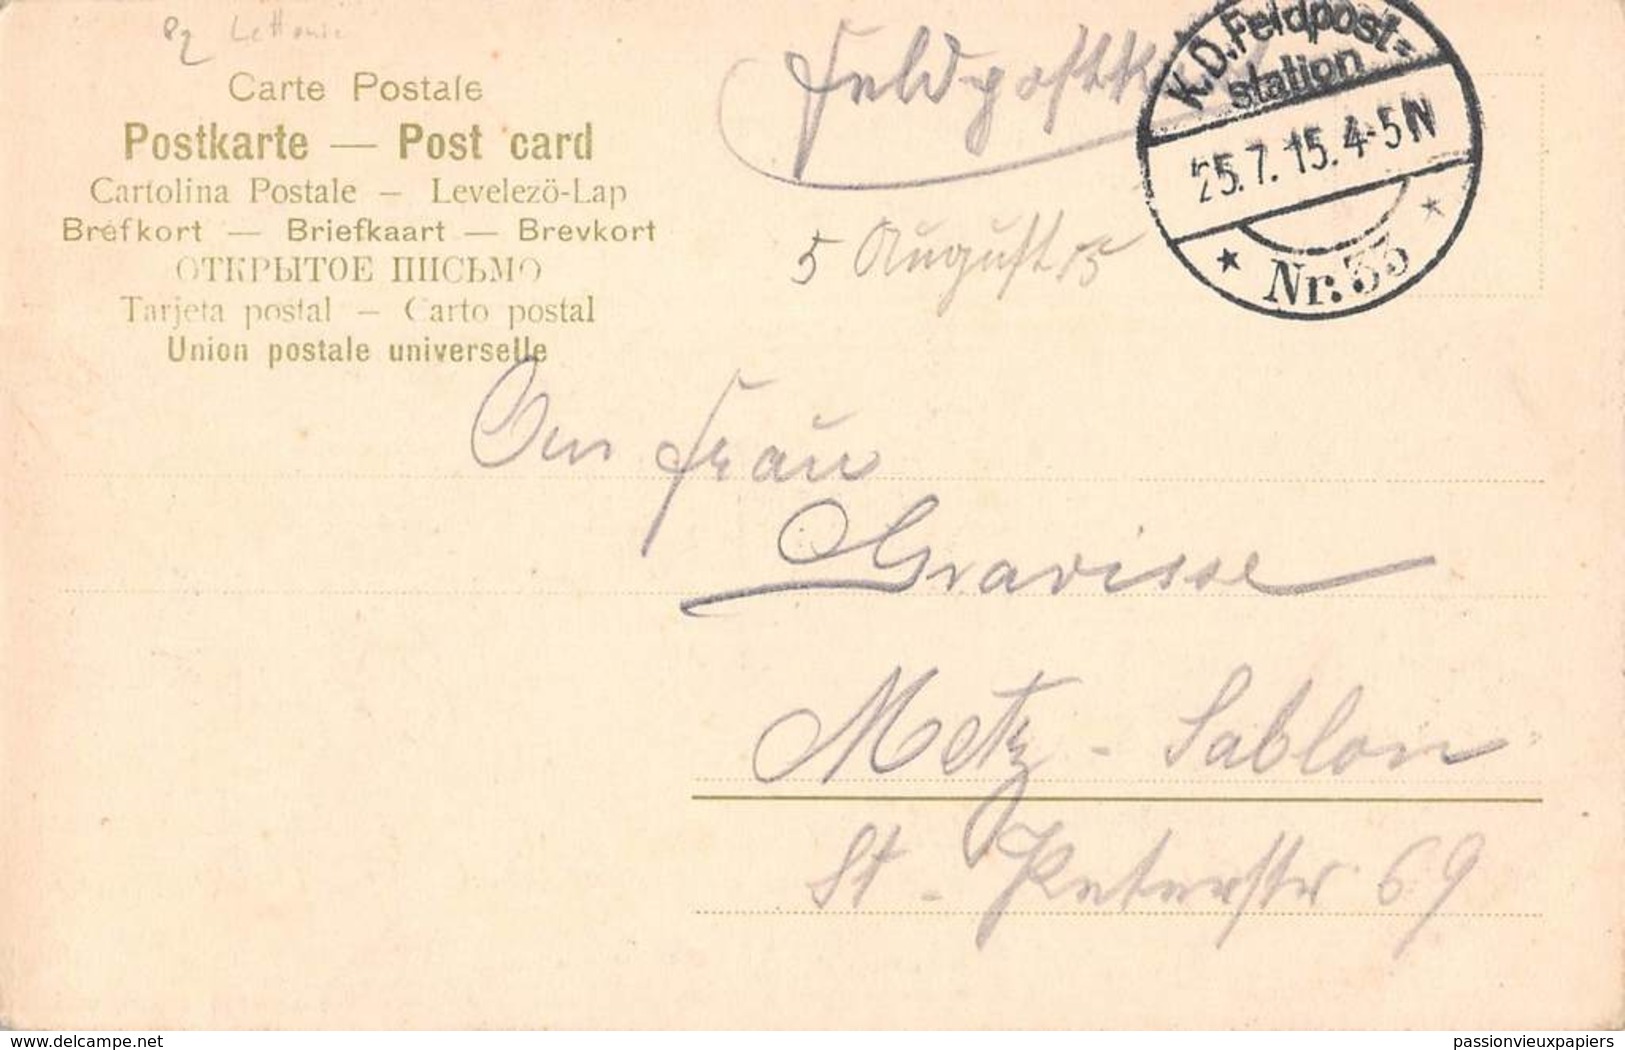 Lettonie
Carte Postale
Postkarte — Post card
Cartolina Postale — Levelezö-Lap
Brefkort — Briefkaart — Brevkort
ОТКРЫТОЕ ПИСЬМО
Tarjeta postal — Carto postal
Union postale universelle
Feldpostk
K.D. Feldpost=
station
25.7.15. 4-5N
* Nr. 33 *
5 August 15
An Frau
Gravisse
Metz - Sablon
St. Peterstr 69
delcampe.net
passionvieuxpapiers